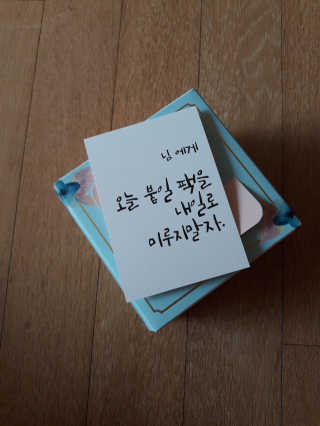 님 에게
오늘 붙일 팩을
내일로
미루지말자.